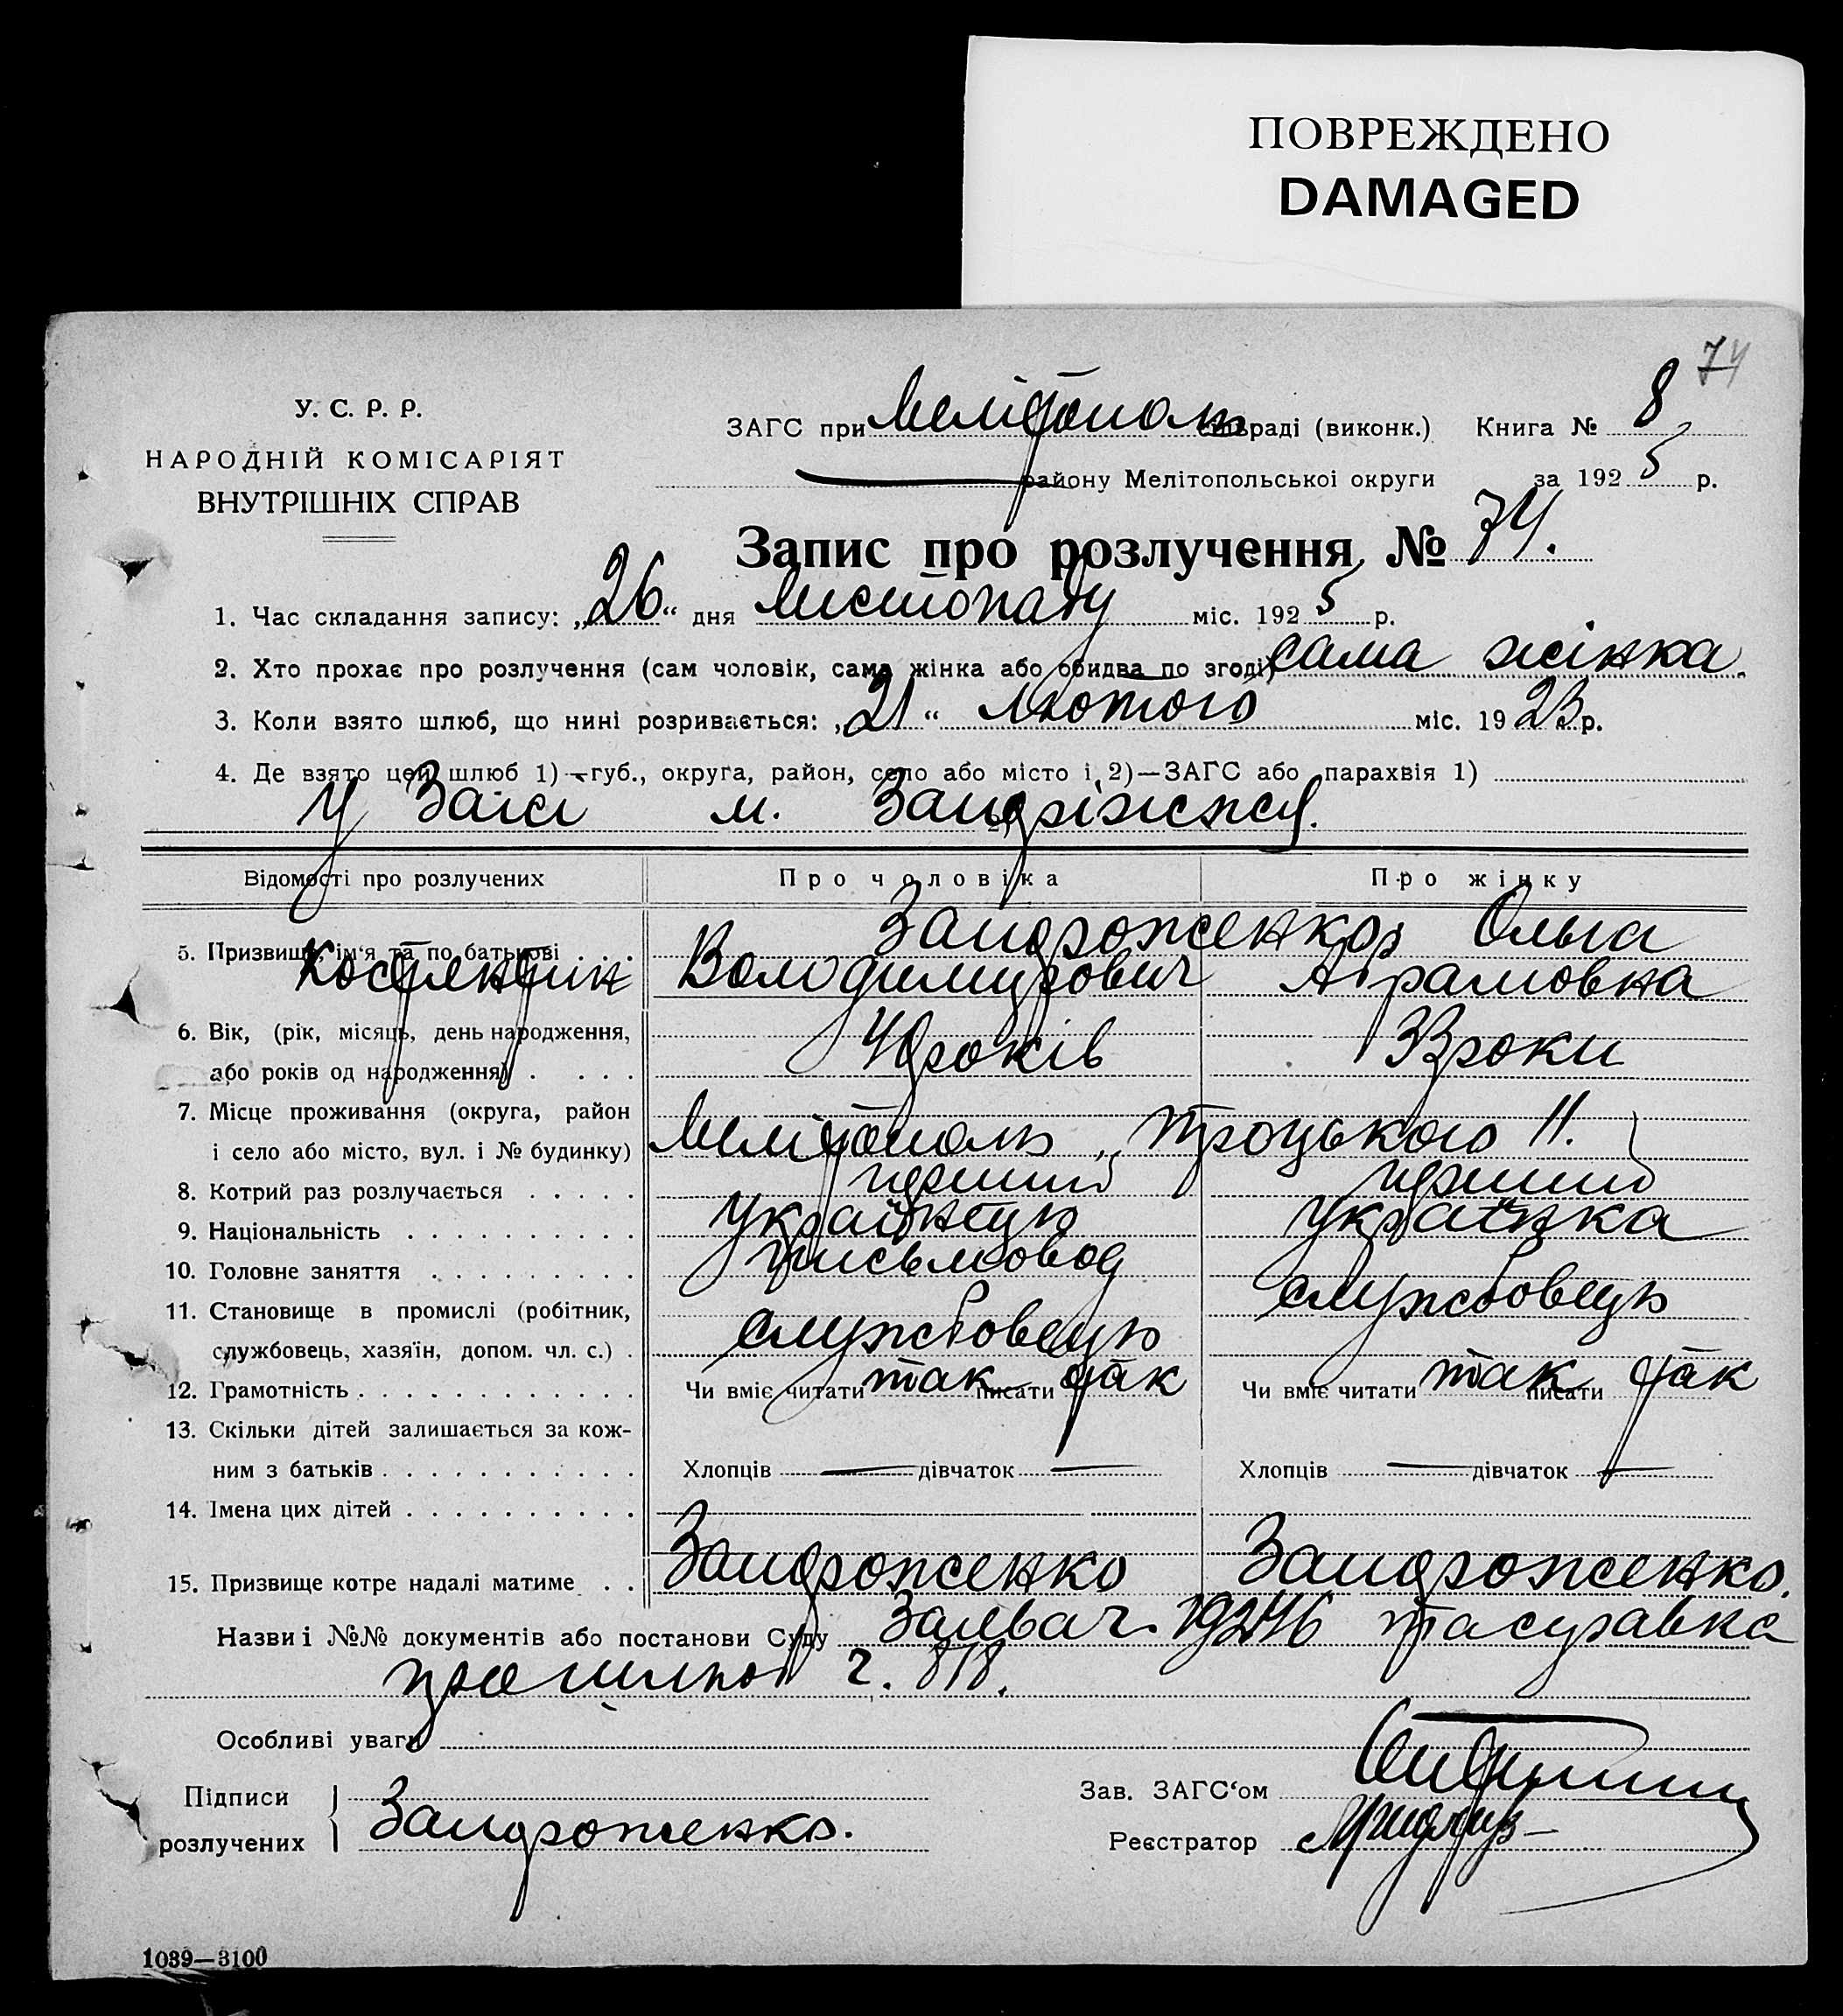 ПОВРЕЖДЕНО
DAMAGED
74
У. С. Р. Р.
НАРОДНІЙ КОМІСАРІЯТ
ВНУТРІШНІХ СПРАВ
ЗАГС при Мелітополь сільраді (виконк.) Книга № 8
району Мелітопольської округи за 1925 р.
Запис про розлучення № 74.
1. Час складання запису: „26“ дня Листопаду міс. 1925 р.
2. Хто прохає про розлучення (сам чоловік, сама жінка або обидва по згоді) сама жінка
3. Коли взято шлюб, що нині розривається: „21“ Лютого міс. 1923 р.
4. Де взято цей шлюб 1)—губ., округа, район, село або місто і 2)—ЗАГС або парахвія 1)
У Загсі м. Запоріжжя.
Відомості про розлучених Про чоловіка Про жінку
5. Призвище, ім‘я та по батькові . . . Запороженко Ольга
Костянтин Володимирович Абрамовна
6. Вік, (рік, місяць, день народження,
або років од народження) . . . . 40 років 33 роки
7. Місце проживання (округа, район
і село або місто, вул. і № будинку) Мелітополь, Троцького 11.
8. Котрий раз розлучається . . . . . перший перший
9. Національність . . . . . . . . . . українець українка
10. Головне заняття . . . . . . . . . письмовод
11. Становище в промислі (робітник, службовець
службовець, хазяїн, допом. чл. с.) . службовець
12. Грамотність . . . . . . . . . . . . Чи вміє читати так писати так Чи вміє читати так писати так
13. Скільки дітей залишається за кож-
ним з батьків . . . . . . . . . . . Хлопців — дівчаток — Хлопців — дівчаток —
14. Імена цих дітей . . . . . . . . . .
15. Призвище котре надалі матиме . . Запороженко Запороженко.
Назви і №№ документів або постанови Суду
ч. 818.
Особливі уваги
Підписи
розлучених
Запороженко.
Зав. ЗАГС‘ом
Реєстратор
1039—3100